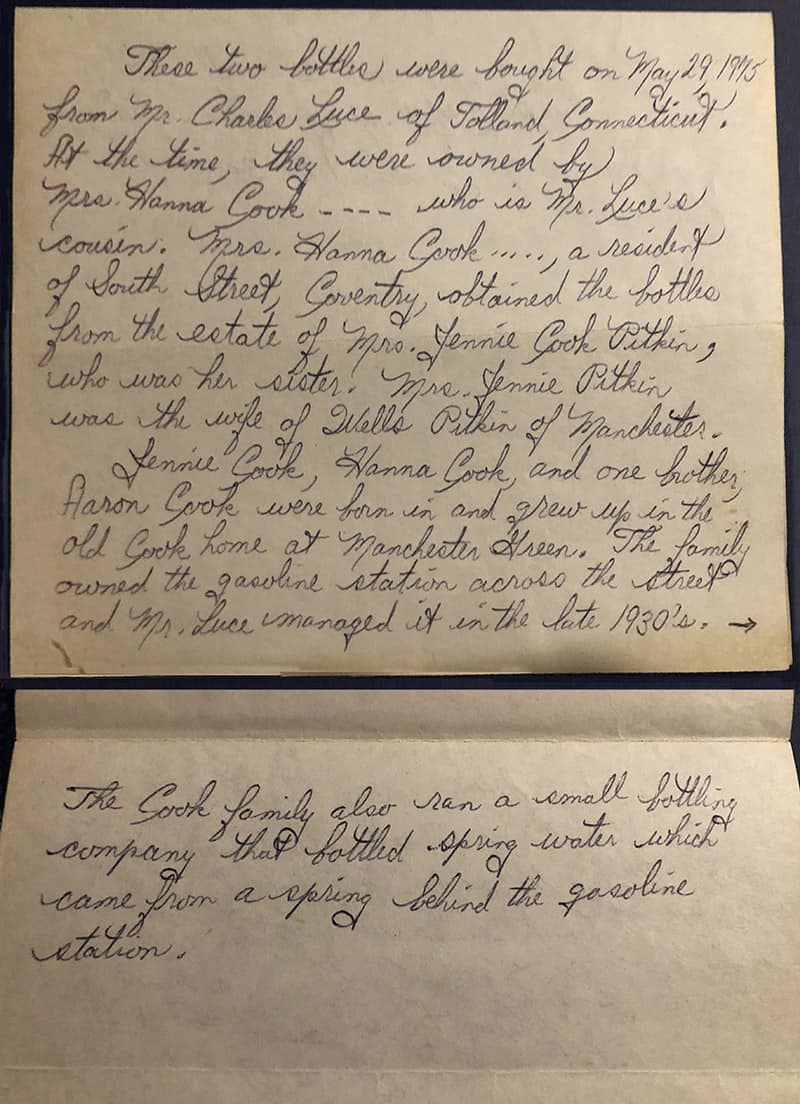 These two bottles were bought on May 29, 1975
from Mr. Charles Luce of Tolland, Connecticut.
At the time, they were owned by
Mrs. Hanna Cook ---- who is Mr. Luce's
cousin. Mrs. Hanna Cook ....., a resident
of South Street, Coventry, obtained the bottles
from the estate of Mrs. Jennie Cook Pitkin,
who was her sister. Mrs. Jennie Pitkin
was the wife of Wells Pitkin of Manchester.
Jennie Cook, Hanna Cook, and one brother,
Aaron Cook were born in and grew up in the
old Cook home at Manchester Green. The family
owned the gasoline station across the street
and Mr. Luce managed it in the late 1930's. →
The Cook family also ran a small bottling
company that bottled spring water which
came from a spring behind the gasoline
station.